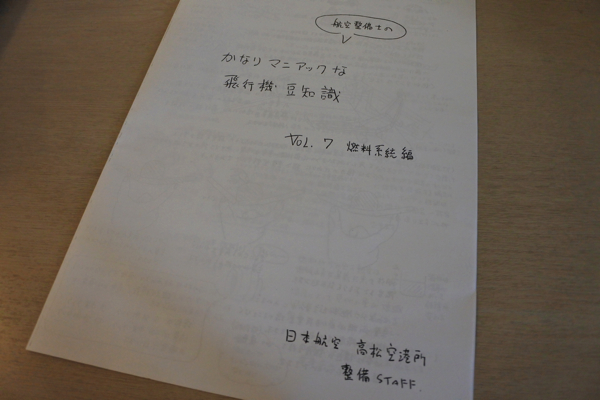 航空整備士の
かなりマニアックな
飛行機豆知識
VOL. 7 燃料系統編
日本航空 高松空港所
整備STAFF.